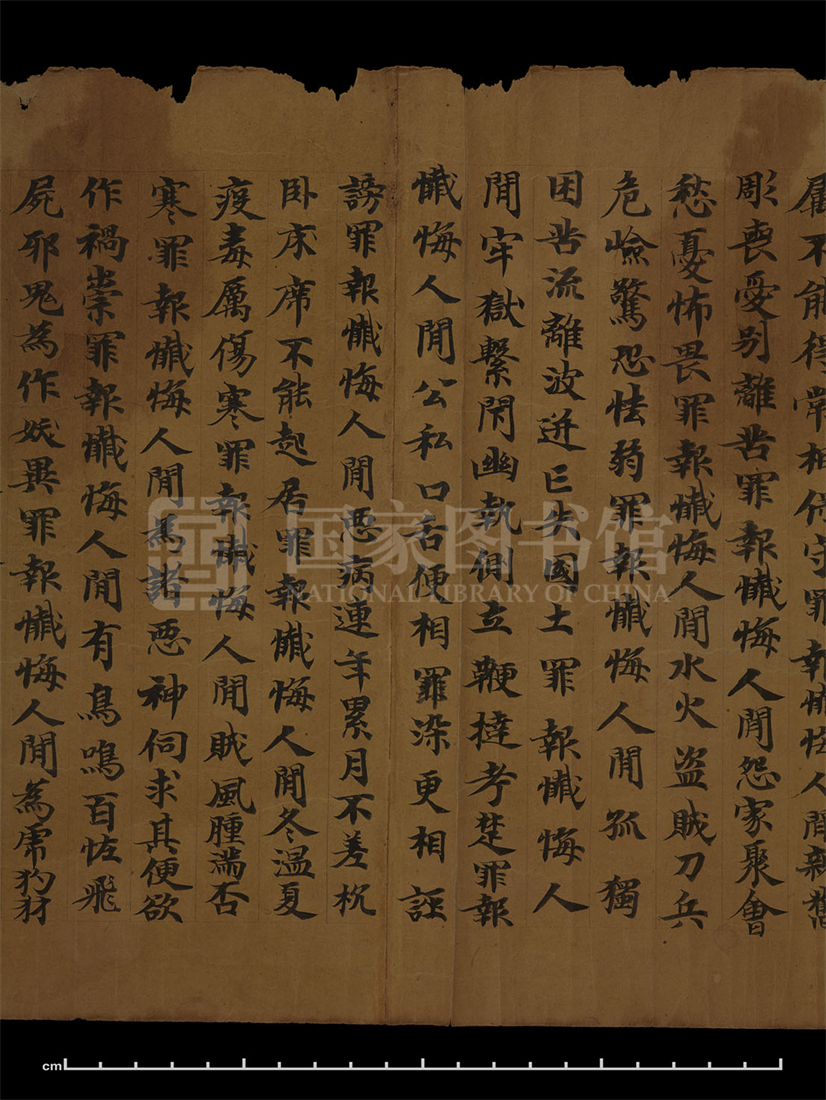 屬不能得常相保守罪報懺悔人間親舊
彫喪愛别離苦罪報懺悔人間怨家聚會
愁憂怖畏罪報懺悔人間水火盜賊刀兵
危嶮驚恐怯弱罪報懺悔人間孤獨
困苦流離波迸亡失國土罪報懺悔人
間牢獄繫閉幽執側立鞭撻考楚罪報
懺悔人間公私口舌便相罪染更相誣
謗罪報懺悔人間惡病連年累月不差枕
卧床席不能起居罪報懺悔人間冬温夏
疫毒厲傷寒罪報懺悔人間賊風腫滿否
寒罪報懺悔人間為諸惡神伺求其便欲
作禍祟罪報懺悔人間有鳥鳴百恠飛
屍邪鬼為作妖異罪報懺悔人間為虎豹豺
国家图书馆
NATIONAL LIBRARY OF CHINA
cm